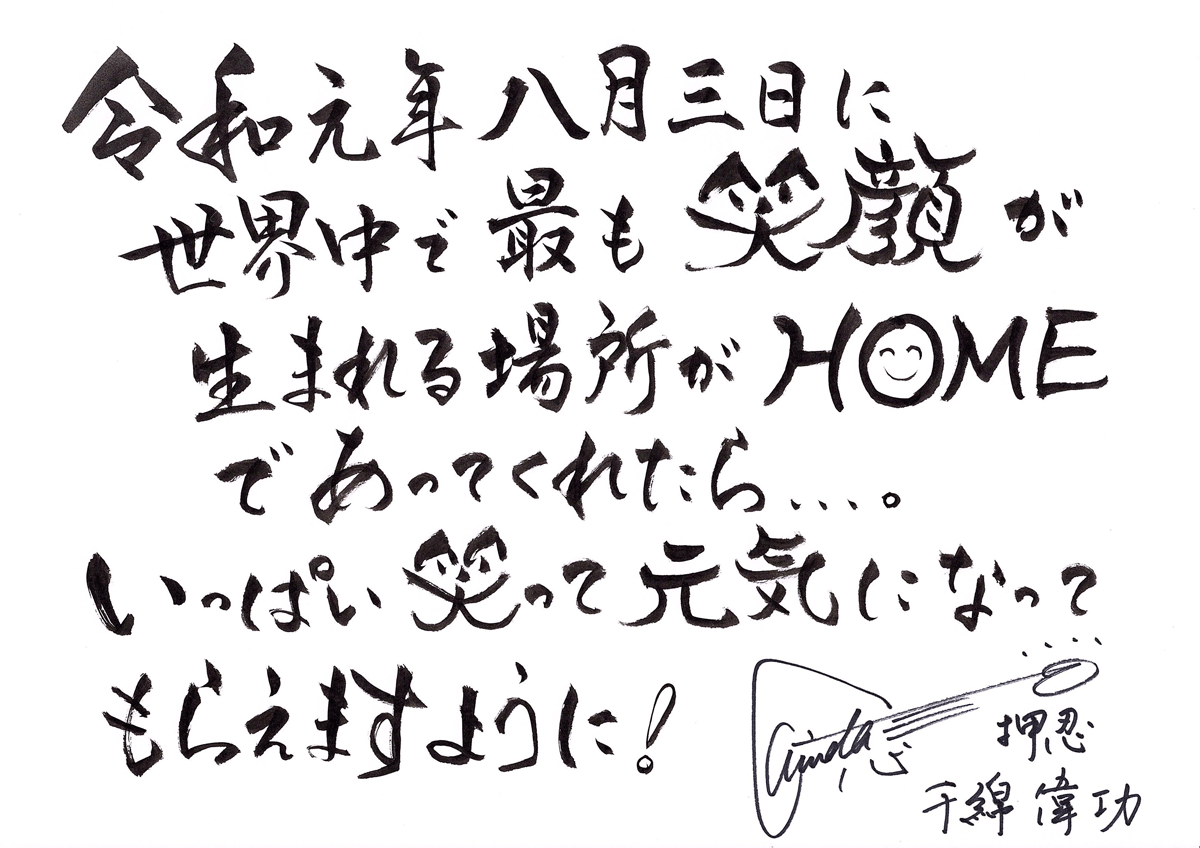 令和元年八月三日に
世界中で最も笑顔が
生まれる場所がHOME
であってくれたら....。
いっぱい笑って元気になって
....
もらえますように!
押忍
千綿偉功